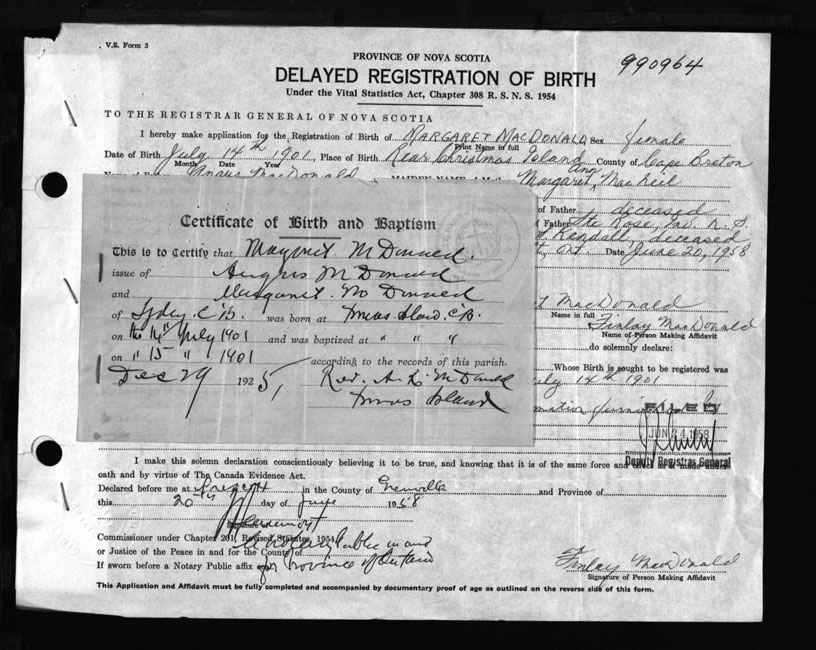 V.S. Form 3
PROVINCE OF NOVA SCOTIA
990964
DELAYED REGISTRATION OF BIRTH
Under the Vital Statistics Act, Chapter 308 R. S. N. S. 1954
TO THE REGISTRAR GENERAL OF NOVA SCOTIA
I hereby make application for the Registration of Birth of MARGARET MACDONALD Sex female
Print Name in full
Date of Birth July 14th 1901, Place of Birth Rear Christmas Island County of Cape Breton
Month Date Year
Angus MacDonald MAIDEN NAME Margaret Ann MacNeil
of Father deceased
of Father
Kendall, deceased
Ont. Date June 20, 1958
Certificate of Birth and Baptism
This is to Certify that Margaret McDonned.
issue of Angus McDonned
and Margaret McDonned
of Sydney C.B. was born at Xmas Island C.B.
on the 14th July 1901 and was baptized at " " "
on " 15 " 1901 according to the records of this parish.
Dec 29 1925, Rev. A. McDonald
Xmas Island
MacDonald
Name in full
Finlay MacDonald
Name of Person Making Affidavit
do solemnly declare:
Whose Birth is sought to be registered was
July 14th 1901
FILED
JUN 24 1958
Deputy Registrar General
I make this solemn declaration conscientiously believing it to be true, and knowing that it is of the same force and effect as if made under
oath and by virtue of The Canada Evidence Act.
Declared before me at Prescott in the County of Grenville and Province of
this 20th day of June 1958
Commissioner under Chapter 201, Revised Statutes, 1954
or Justice of the Peace in and for the County of
If sworn before a Notary Public affix
a Notary Public in and
for Province of Ontario
Finlay MacDonald
Signature of Person Making Affidavit
This Application and Affidavit must be fully completed and accompanied by documentary proof of age as outlined on the reverse side of this form.